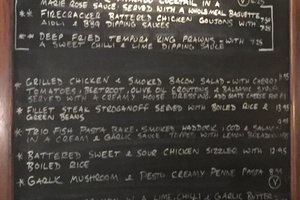 MARIE ROSE SAUCE COCKTAIL IN A
FIRECRACKER BATTERED CHICKEN GOUJONS WITH
AIOLI & BBQ DIPPING SAUCES 7.25
DEEP FRIED TEMPURA KING PRAWNS - WITH
A SWEET CHILLI & LIME DIPPING SAUCE 7.50
GRILLED CHICKEN & SMOKED BACON SALAD - WITH CHERRY
TOMATOES, BEETROOT, OLIVE OIL CROUTONS & BALSAMIC SYRUP
SERVED WITH A CREAMY HOUSE DRESSING. ADD GOATS CHEESE FOR
FILLET STEAK STROGANOFF SERVED WITH BOILED RICE &
GREEN BEANS
TRIO FISH PASTA BAKE, SMOKED HADDOCK, COD & SALMON
IN A CREAM & GARLIC SAUCE TOPPED WITH LEMON BREADCRUMBS
BATTERED SWEET & SOUR CHICKEN SIZZLER WITH 12.95
BOILED RICE
GARLIC MUSHROOM & PESTO CREAMY PENNE PASTA
V
IN A LIME, CHILLI & GARLIC BUTTER